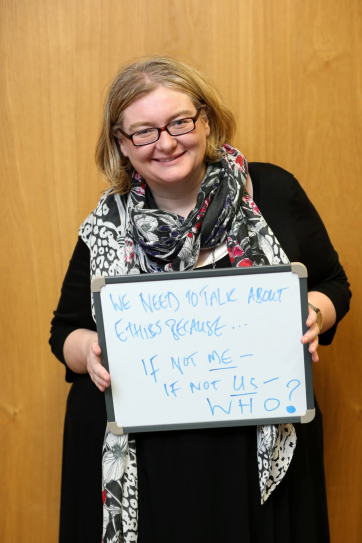 WE NEED TO TALK ABOUT
ETHICS BECAUSE...
IF NOT ME -
IF NOT US -
WHO?